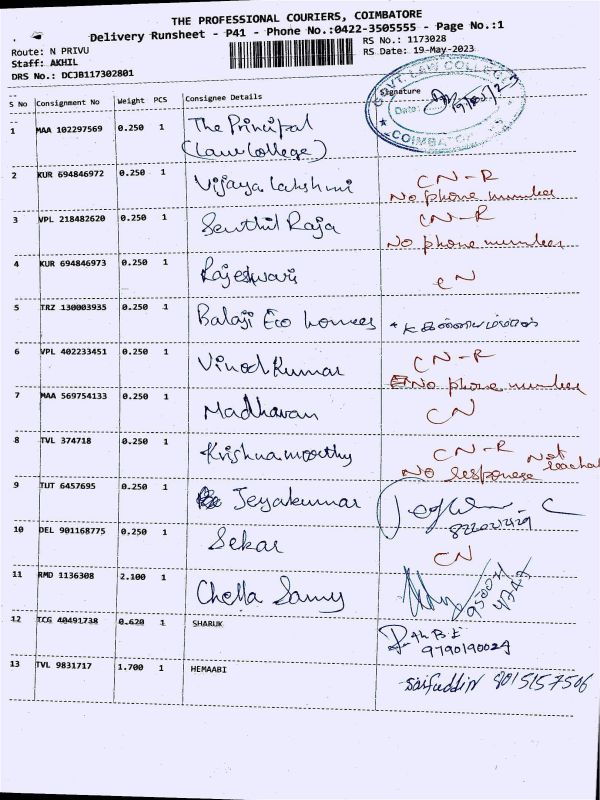 THE PROFESSIONAL COURIERS, COIMBATORE
Delivery Runsheet - P41 - Phone No.:0422-3505555 - Page No.:1
Route: N PRIVU
RS No.: 1173028
Staff: AKHIL
RS Date: 19-May-2023
DRS No.: DCJB117302801
GOVT LAW COLLEGE
Date:
COIMBATORE
S No Consignment No Weight PCS Consignee Details Signature
1 MAA 102297569 0.250 1 The Principal
(Law College)
2 KUR 694846972 0.250 1 Vijaya Lakshmi CN-R
No phone number
3 VPL 218482620 0.250 1 Senthil Raja CN-R
No phone number
4 KUR 694846973 0.250 1 Rajeshwari CN
5 TRZ 130003935 0.250 1 Balaji Eco homes
6 VPL 402233451 0.250 1 Vinod Kumar CN-R
No phone number
7 MAA 569754133 0.250 1 Madhavan CN
8 TVL 374718 0.250 1 Krishna moorthy CN-R Not
No response
9 TUT 6457695 0.250 1 Jeyakumar
10 DEL 901168775 0.250 1 Sekar CN
11 RMD 1136308 2.100 1 Chella Samy
12 TCG 40491738 0.620 1 SHARUK
9790190029
13 TVL 9831717 1.700 1 HEMAABI Saifuddin 8015157506